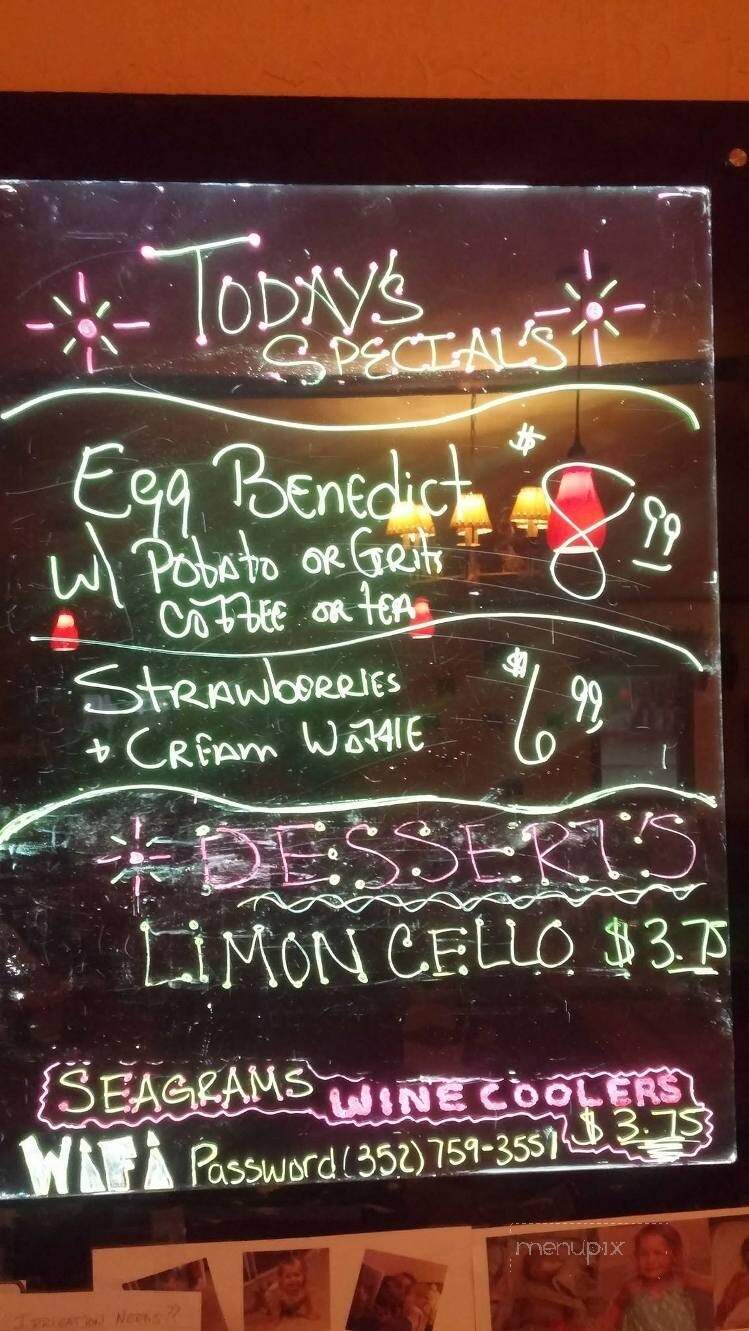 TODAY'S
SPECIAL'S
Egg Benedict $8.99
w/ Potato or Grits
Coffee or tea
Strawberries $6.99
+ Cream Waffle
DESSERT'S
LIMON CELLO $3.75
SEAGRAMS WINE COOLERS
$3.75
WiFi Password (352) 759-3551
menupix
IRRIGATION NEEDS??